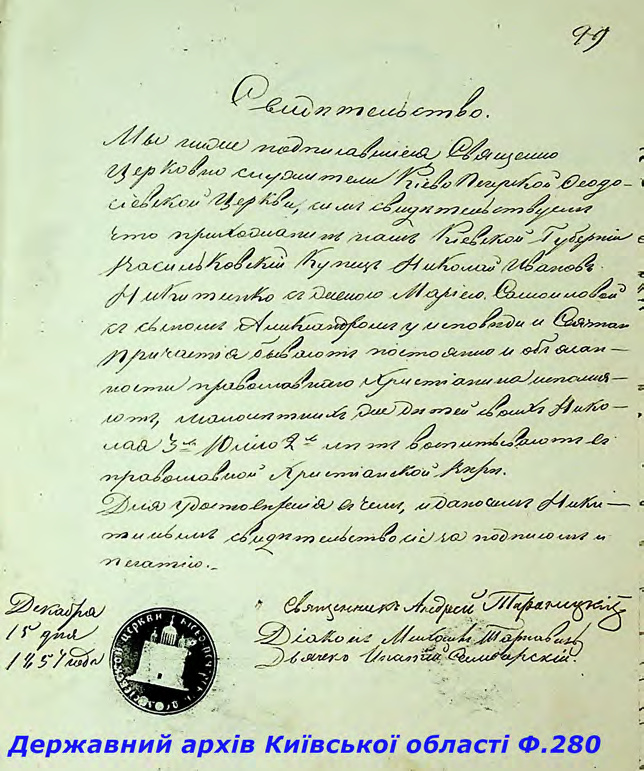 99
Свидѣтельство.
Мы ниже подписавшіеся Священно
Церковно служители Кіево Печерской Ѳеодо-
сіевской Церкви, симъ свидѣтельствуемъ
что прихожанинъ нашъ Кіевской Губерніи
Васильковскій Купецъ Николай Ивановъ
Никитенко съ женою Маріею Самоиловой
съ сыномъ Александромъ у исповѣди и Святаго
Причастія бываютъ постоянно и обязан-
ности православнаго Христіанина исполня-
ютъ, малолѣтнихъ же дѣтей своихъ Нико-
лая 3хъ Юлію 2хъ лѣтъ воспитываютъ въ
православной Христіанской Вѣрѣ.
Для удостовѣренія въ чемъ, и даносимъ Ники-
тельство за подписомъ и
печатію.
Священникъ Андрей
Декабря
15 дня
185 года
Діаконъ
Дьячекъ
Державний архів Київської області Ф.280